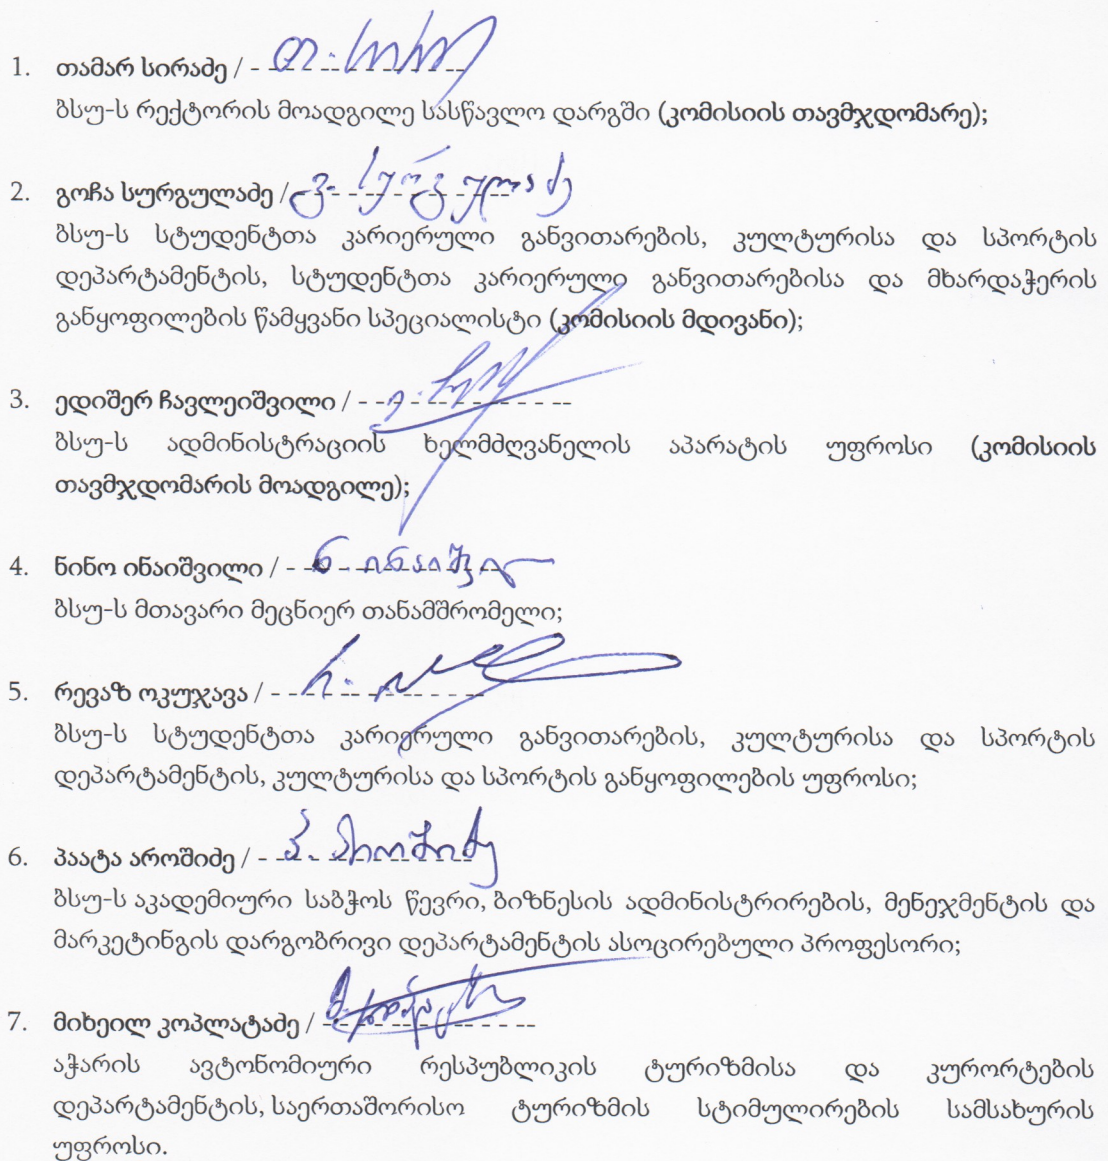 1. თამარ სირაძე / - - - - - - - - - - - -
ბსუ-ს რექტორის მოადგილე სასწავლო დარგში (კომისიის თავმჯდომარე);
2. გოჩა სურგულაძე / გ. სურგულაძე
ბსუ-ს სტუდენტთა კარიერული განვითარების, კულტურისა და სპორტის
დეპარტამენტის, სტუდენტთა კარიერული განვითარებისა და მხარდაჭერის
განყოფილების წამყვანი სპეციალისტი (კომისიის მდივანი);
3. ედიშერ ჩავლეიშვილი / - - - - - - - - - - - -
ბსუ-ს ადმინისტრაციის ხელმძღვანელის აპარატის უფროსი (კომისიის
თავმჯდომარის მოადგილე);
4. ნინო ინაიშვილი / - ნ. ინაიშვილი
ბსუ-ს მთავარი მეცნიერ თანამშრომელი;
5. რევაზ ოკუჯავა / - - - - - - - - - - - -
ბსუ-ს სტუდენტთა კარიერული განვითარების, კულტურისა და სპორტის
დეპარტამენტის, კულტურისა და სპორტის განყოფილების უფროსი;
6. პაატა აროშიძე / - პ. აროშიძე
ბსუ-ს აკადემიური საბჭოს წევრი, ბიზნესის ადმინისტრირების, მენეჯმენტის და
მარკეტინგის დარგობრივი დეპარტამენტის ასოცირებული პროფესორი;
7. მიხეილ კოპლატაძე / - - - - - - - - - - - -
აჭარის ავტონომიური რესპუბლიკის ტურიზმისა და კურორტების
დეპარტამენტის, საერთაშორისო ტურიზმის სტიმულირების სამსახურის
უფროსი.